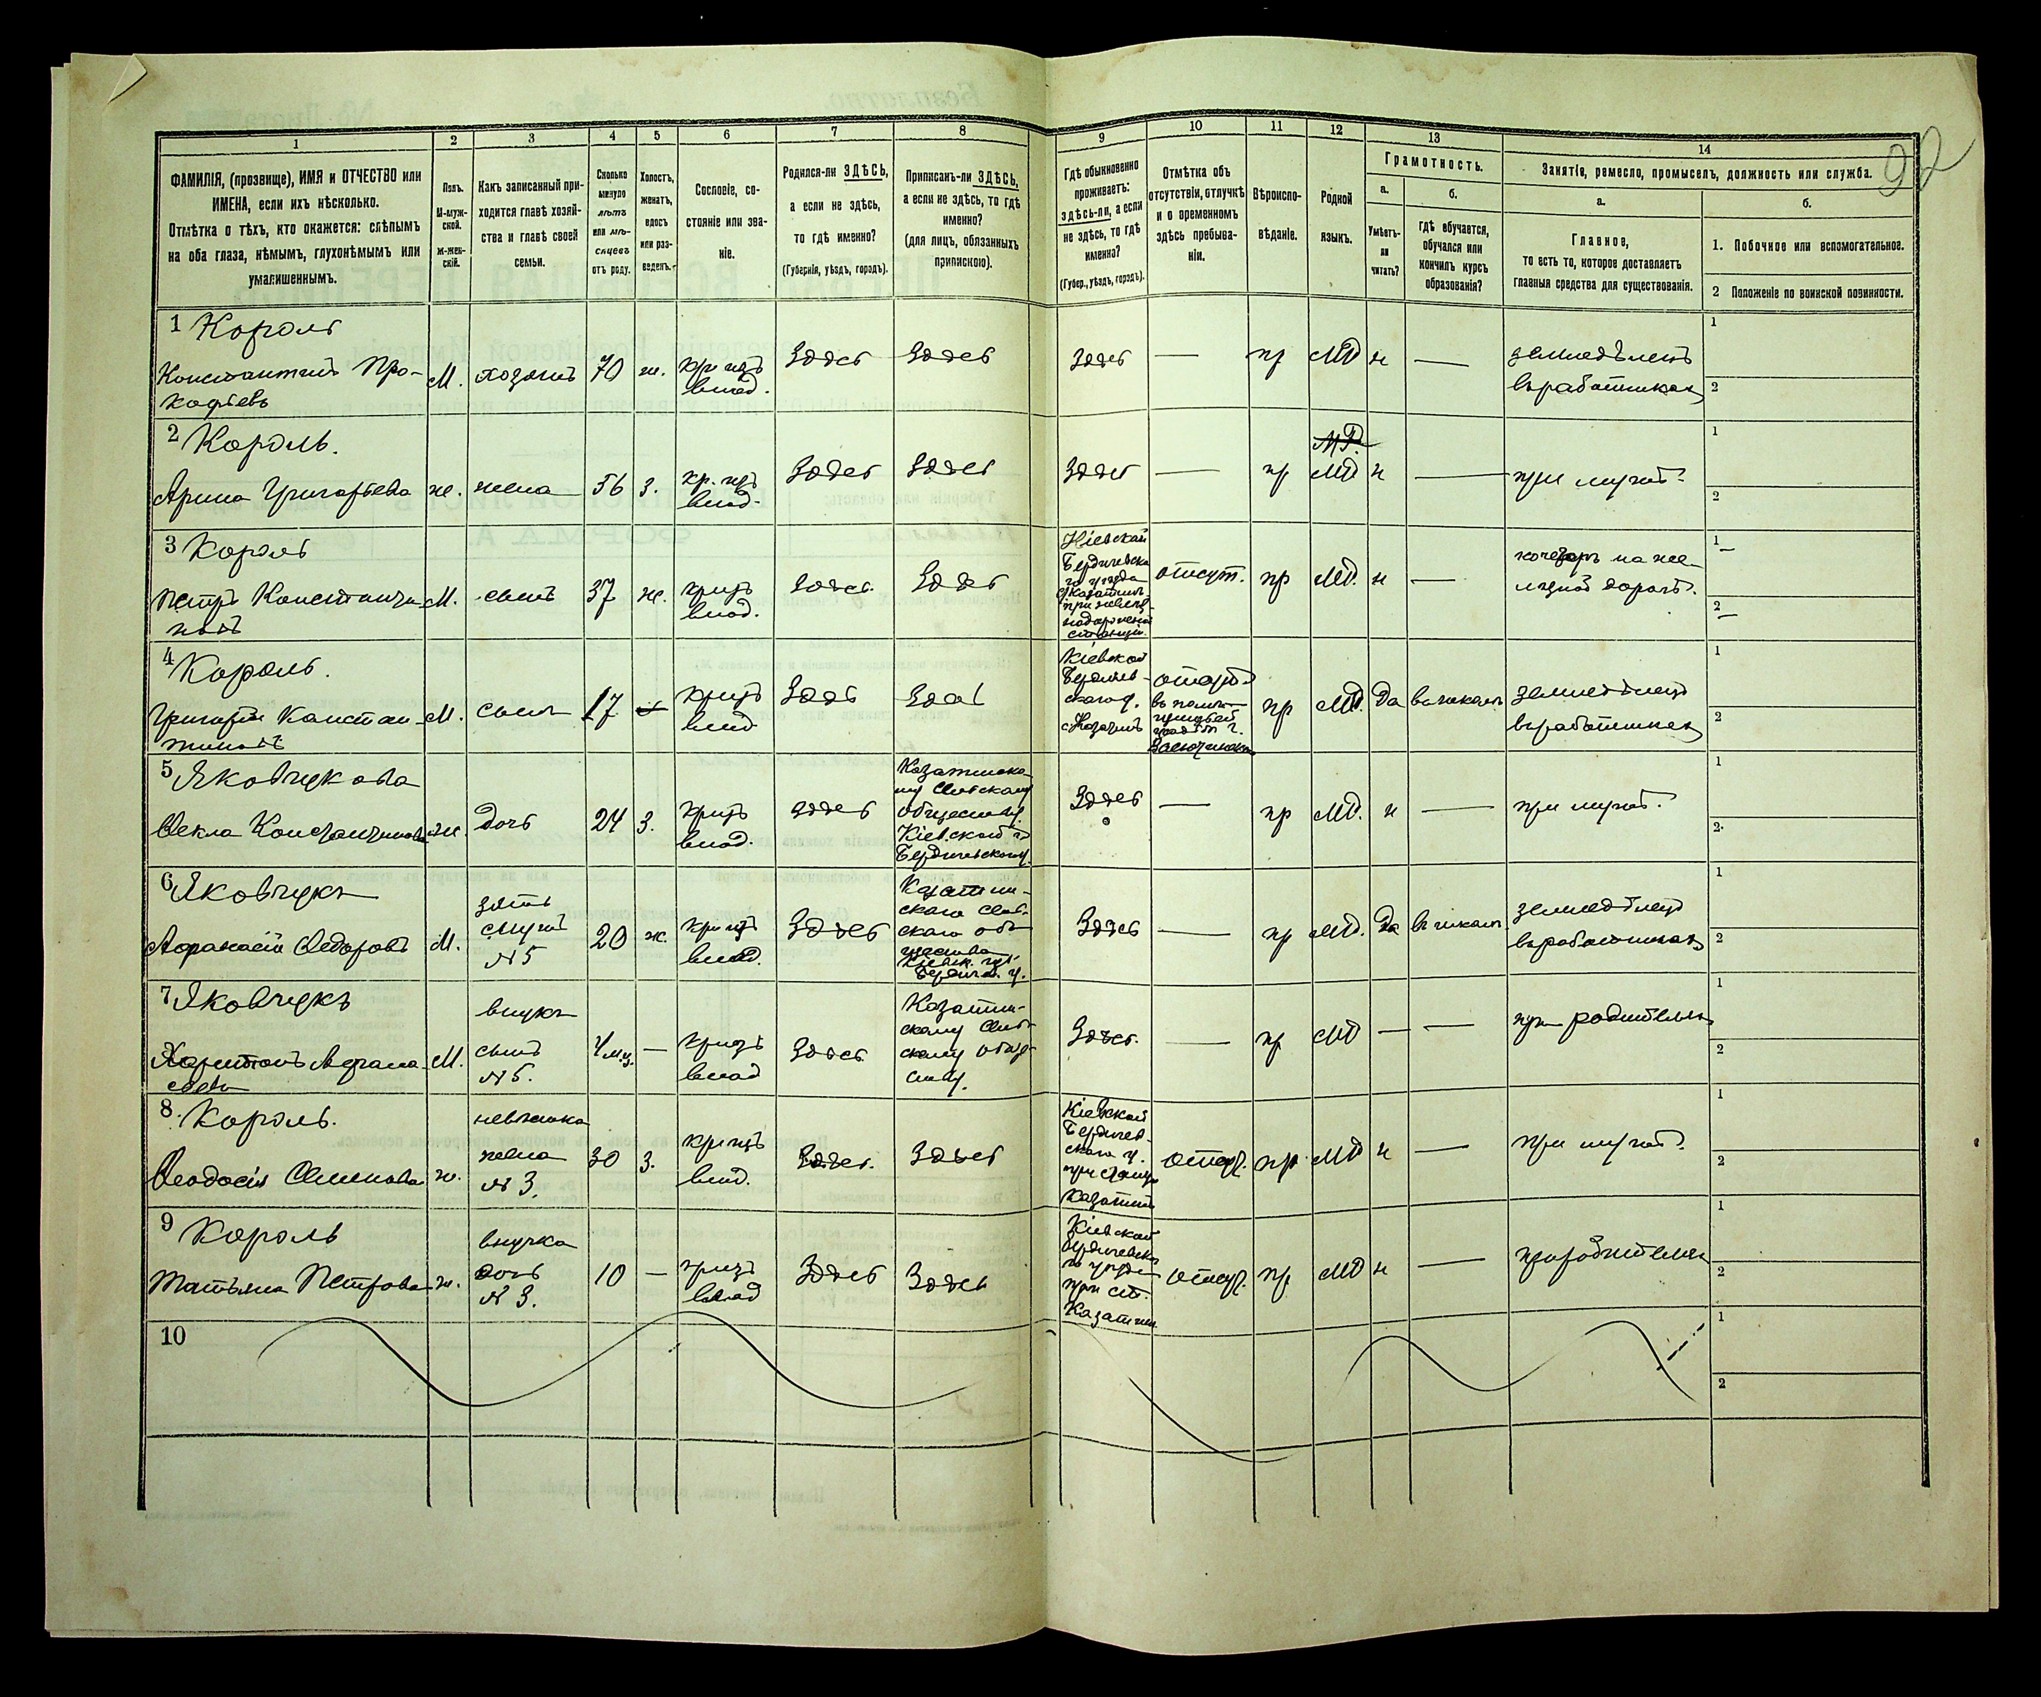 92
1
2
3
4
5
6
7
8
9
10
11
12
13
14
ФАМИЛІЯ, (прозвище), ИМЯ и ОТЧЕСТВО или
ИМЕНА, если ихъ нѣсколько.
Отмѣтка о тѣхъ, кто окажется: слѣпымъ
на оба глаза, нѣмымъ, глухонѣмымъ или
умалишеннымъ.
Полъ.
М-муж-
ской.
ж-жен-
скій.
Какъ записанный при-
ходится главѣ хозяй-
ства и главѣ своей
семьи.
Сколько
минуло
лѣтъ
или мѣ-
сяцевъ
отъ роду.
Холостъ,
женатъ,
вдовъ
или раз-
веденъ.
Сословіе, со-
стояніе или зва-
ніе.
Родился-ли ЗДѢСЬ,
а если не здѣсь,
то гдѣ именно?
(Губернія, уѣздъ, городъ).
Приписанъ-ли ЗДѢСЬ,
а если не здѣсь, то гдѣ
именно?
(для лицъ, обязанныхъ
припискою).
Гдѣ обыкновенно
проживаетъ:
здѣсь-ли, а если
не здѣсь, то гдѣ
именно?
(Губер., уѣздъ, городъ).
Отмѣтка объ
отсутствіи, отлучкѣ
и о временномъ
здѣсь пребыва-
ніи.
Вѣроиспо-
вѣданіе.
Родной
языкъ.
Грамотность.
а.
Умѣетъ-
ли
читать?
б.
Гдѣ обучается,
обучался или
кончилъ курсъ
образованія?
Занятіе, ремесло, промыселъ, должность или служба.
а.
Главное,
то есть то, которое доставляетъ
главныя средства для существованія.
б.
1. Побочное или вспомогательное.
2 Положеніе по воинской повинности.
1 Король
Константинъ Про-
кофіевъ
М. хозяинъ 70 ж. кр-нцъ
влад.
Здѣсь Здѣсь Здѣсь — пр МР н —
земледѣлецъ
1
2
2 Король.
Арина Григорьева ж. жена 56 з. кр.нцъ
влад.
Здѣсь Здѣсь Здѣсь — пр МР н — при мужѣ.
1
2
3 Король
Петръ Константи-
новъ
М. сынъ 37 ж.
влад.
Здѣсь. Здѣсь
Кіевской
Бердичевска
го уѣзда
с. Казатинъ
при желѣз-
нодорожной
станціи.
отсут. пр МР. н —
кочегаръ на же-
лѣзной дорогѣ.
1 —
2 —
4 Король.
Григорій Констан-
тиновъ
М. сынъ 17
влад
Здѣсь Здѣсь
Кіевской
Бердичев-
скаго у.
с. Казатинъ
пр МР. Да въ школѣ
земледѣлецъ
1
2
5 Яковчукова
Ѳекла Константинова ж. дочь 24 з.
влад.
Здѣсь
Казатинско-
му сельскому
обществу.
Кіевской г.
Бердичевскому.
Здѣсь — пр МР. н — при мужѣ.
1
2
6 Яковчукъ
Афанасій Ѳедоровъ М.
зять
мужъ
N 5
20 ж.
влад.
Здѣсь
Казатин-
скаго сель-
скаго об-
щества
Бердич. у.
Здѣсь — пр МР. Да въ школѣ
земледѣлецъ
1
2
7 Яковчукъ
Харитонъ Афана-
сіевъ
М.
внукъ
сынъ
N 5.
4 м. —
влад
Здѣсь
Казатин-
скому сель-
скому обще-
ству.
Здѣсь. — пр МР — — при родителяхъ
1
2
8. Король.
Ѳеодосія Семенова ж.
невѣстка
жена
N 3.
30 з.
влад.
Здѣсь. Здѣсь
Кіевской
Бердичев-
скаго у.
при станціи
Казатинъ
отсут. пр МР н — при мужѣ.
1
2
9 Король
Татьяна Петрова ж.
внучка
дочь
N 3.
10 —
влад
Здѣсь Здѣсь
Кіевской
Бердичевска
го уѣзда
при ст.
Казатин.
отсут. пр МР н — при родителяхъ
1
2
10
1
2